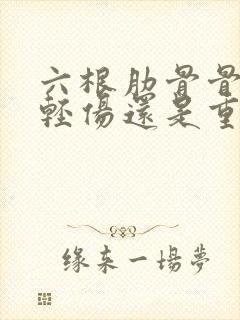 六根肋骨骨
輕傷還是重
緣来一場夢